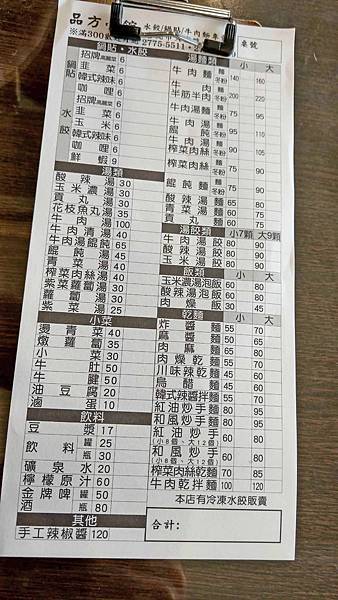 品方 水餃/鍋貼/牛肉麵專
※滿300 2775-5511 桌號
鍋貼・水餃
鍋貼
招牌高麗菜 6
韭菜 6
韓式辣味 6
咖哩 6
水餃
招牌高麗菜 6
韭菜 6
玉米 6
韓式辣味 6
咖哩 6
鮮蝦 9
湯類
酸辣湯 30
玉米濃湯 30
貢丸湯 30
花枝魚丸湯 35
牛肉湯 100
牛肉清湯 40
牛肉湯餛飩 65
餛飩湯 45
青菜湯 30
榨菜肉絲湯 40
紫菜蘿蔔湯 30
蘿蔔湯 30
紫菜湯 25
小菜
燙青菜 40
燉蘿蔔 35
小菜 30
牛肚 50
牛腱 50
油豆腐 20
滷蛋 10
飲料
豆漿 17
飲料 罐 25
瓶 30
礦泉水 20
檸檬原汁 60
金牌啤酒 罐 50
瓶 80
其他
手工辣椒醬 120
湯麵類 小 大
牛肉麵 冬粉 140 160
半筋半肉 麵 冬粉 200 220
牛肉湯 麵 冬粉 75 95
餛飩 麵 冬粉 75 90
榨菜肉絲 麵 冬粉 90 105
餛飩麵 冬粉 75 90
酸辣湯麵 60 80
青菜湯麵 60 75
貢丸麵 60 75
湯餃類 小7顆 大9顆
牛肉湯餃 80 90
酸辣湯餃 80 90
玉米湯餃 80 90
飯類
玉米濃湯泡飯 60
酸辣湯泡飯 60 80
肉燥飯 30
乾麵類
炸醬麵 55 70
麻醬麵 50 65
肉麻麵 60
肉燥乾麵 55
川味辣乾麵 45 60
烏醋麵 45
韓式辣醬拌麵 80
紅油炒手麵 80 95
和風炒手麵 80 95
紅油炒手 60 80
(小8個、大12個)
和風炒手 60 80
(小8個、大12個)
榨菜肉絲乾麵 70 85
牛肉乾拌麵 100 120
本店有冷凍水餃販賣
合計：